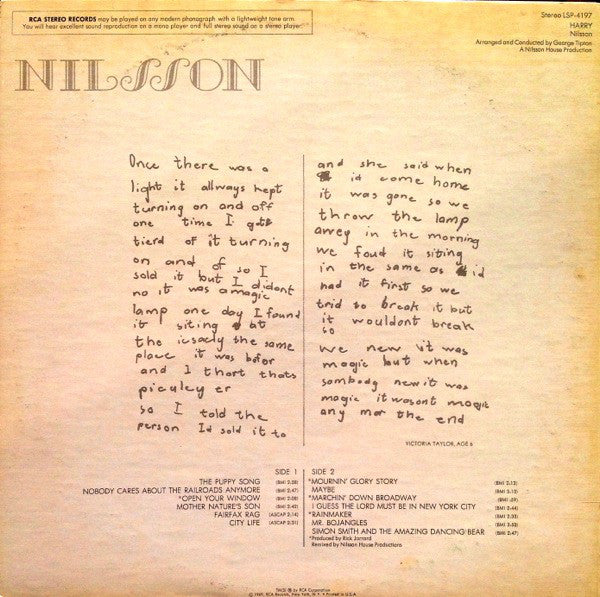 RCA STEREO RECORDS may be played on any modern phonograph with a lightweight tone arm.
You will hear excellent sound reproduction on a mono player and full stereo sound on a stereo player.
Stereo LSP-4197
HARRY
Nilsson
Arranged and Conducted by George Tipton
A Nilsson House Production
NILSSON
Once there was a
light it allways kept
turning on and off
one time I got
tierd of it turning
on and of so I
sold it but I didont
no it was a magic
lamp one day I found
it siting at
the icsacly the same
place it was befor
and I thort thats
piculey er
so I told the
person I'd sold it to
and she said when
id come home
it was gone so we
throw the lamp
awey in the morning
we foud it siting
in the same as id
had it first so we
trid to break it but
it wouldont break
so
we new it was
magic but when
sombody new it was
magic it wasont magic
any mor the end
VICTORIA TAYLOR, AGE 6
SIDE 1
THE PUPPY SONG (BMI 2:38)
NOBODY CARES ABOUT THE RAILROADS ANYMORE (BMI 2:47)
*OPEN YOUR WINDOW (BMI 2:08)
MOTHER NATURE'S SON (BMI 2:42)
FAIRFAX RAG (ASCAP 2:14)
CITY LIFE (ASCAP 2:31)
SIDE 2
*MOURNIN' GLORY STORY (BMI 2:13)
MAYBE (BMI 3:10)
*MARCHIN' DOWN BROADWAY (BMI :59)
I GUESS THE LORD MUST BE IN NEW YORK CITY (BMI 2:44)
*RAINMAKER
MR. BOJANGLES
SIMON SMITH AND THE AMAZING DANCING BEAR (BMI 2:47)
*Produced by Rick Jarrard
Remixed by Nilsson House Productions
TMK(S) ® by RCA Corporation
© 1969, RCA Records, New York, N. Y. • Printed in U.S.A.